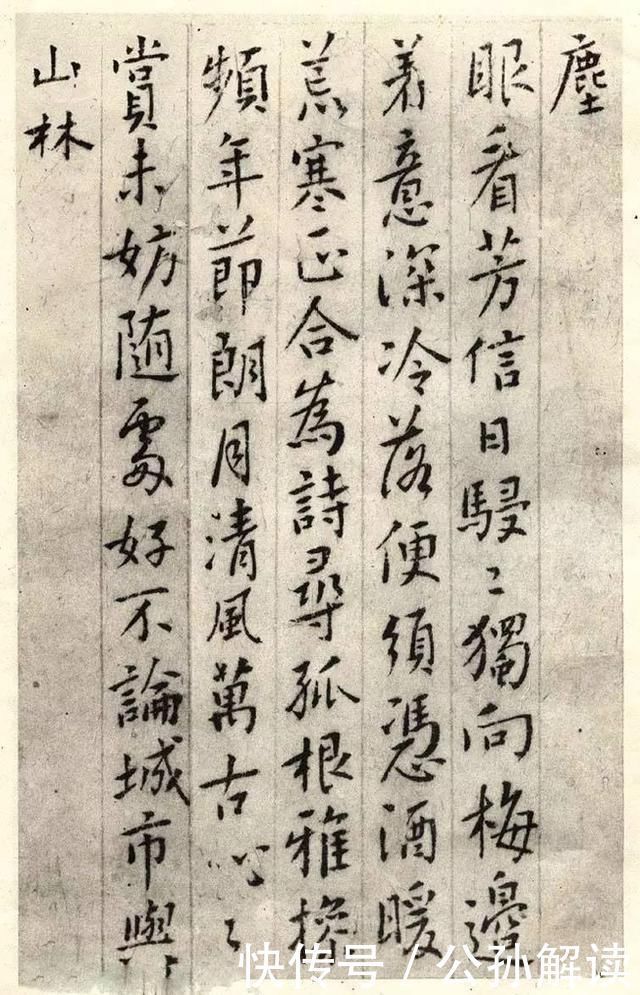 塵
眼看芳信日駸〻獨向梅邊
着意深冷落便須憑酒暖
荒寒正合為詩尋孤根雅操
頻年節朗月清風萬古心〻
賞未妨隨處好不論城市與
山林
快传号 / 公孙解读